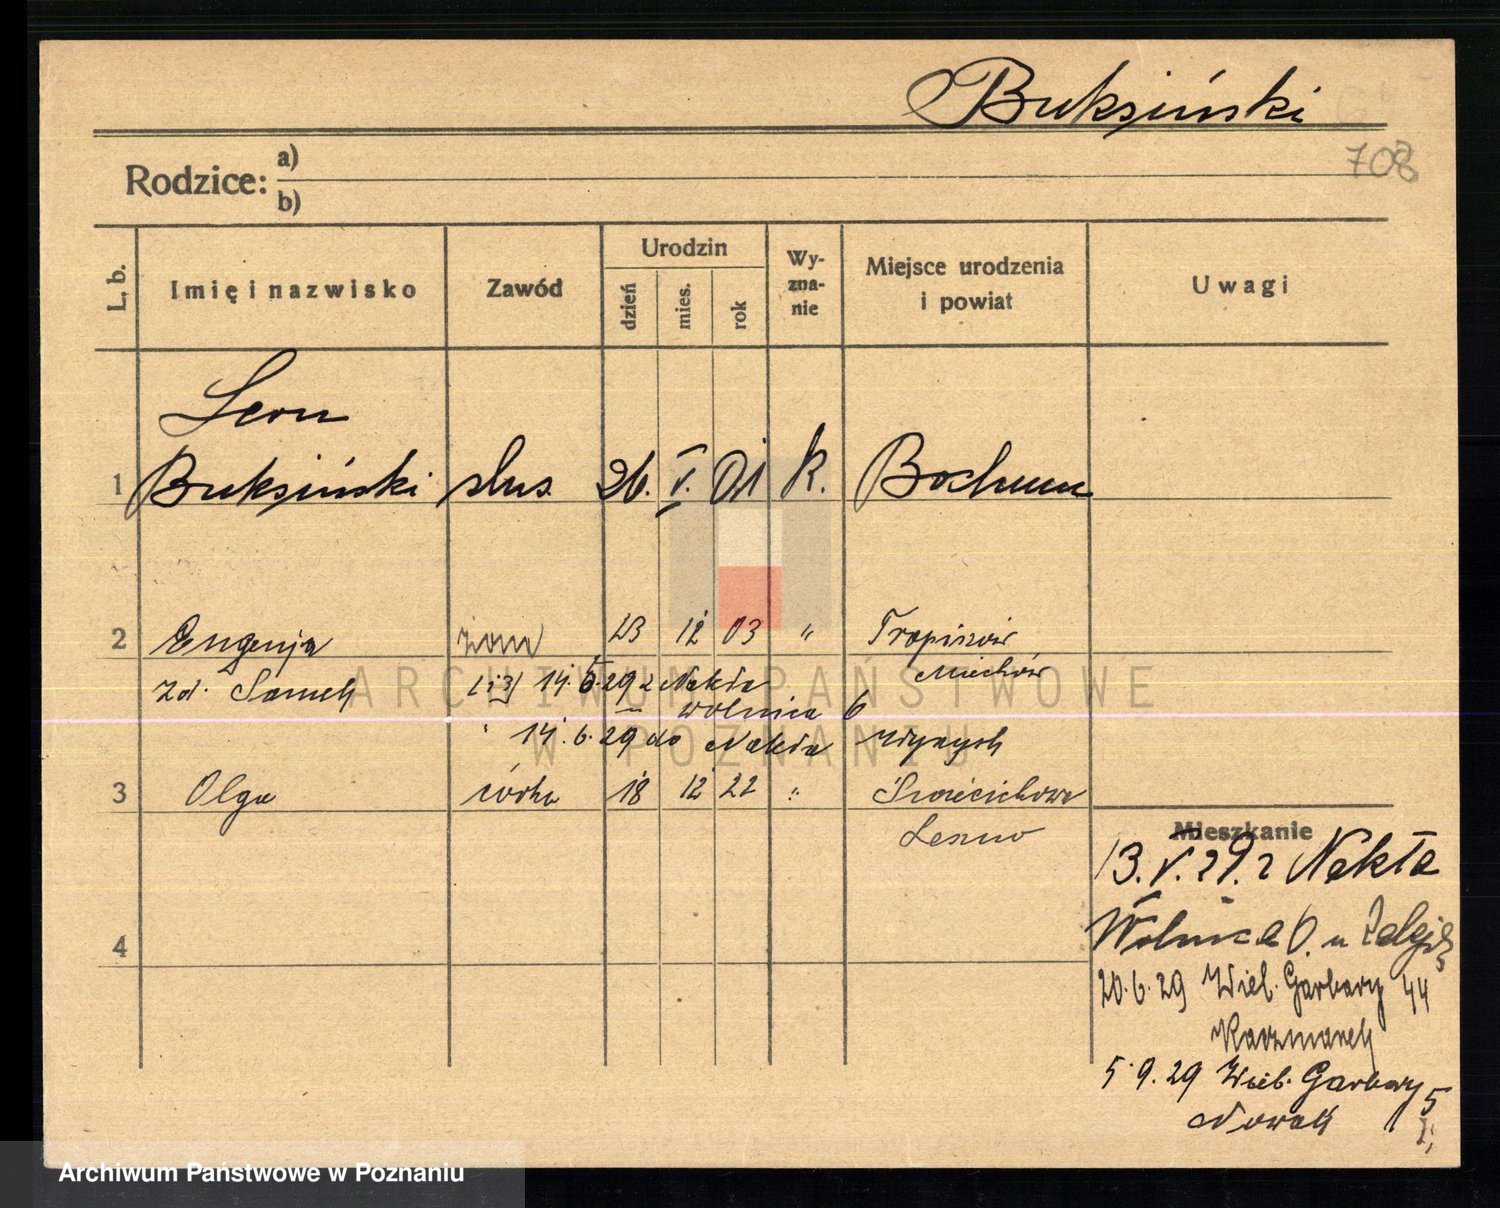 Buksiński
708
Rodzice: a)
b)
L. b. Imię i nazwisko Zawód Urodzin dzień mies. rok Wy-zna-nie Miejsce urodzenia i powiat Uwagi
Leon
1 Buksiński ślus. 26. V. 01 k. Bochum
2 Eugenja żona 23 12 03 "
Miechów
zd. Samek 14.5.29 z Nekla
Wolnica 6
14.6.29 do Nekla
3 Olga córka 18 12 22 " Święciechowa
Leszno
Mieszkanie
13.V.29. z Nekła
Wolnica 6. u
4
20.6.29 Wiel. Garbary 44
Kaczmarek
5.9.29 Wiel. Garbary 5
Nowak
ARCHIWUM PAŃSTWOWE
W POZNANIU
Archiwum Państwowe w Poznaniu